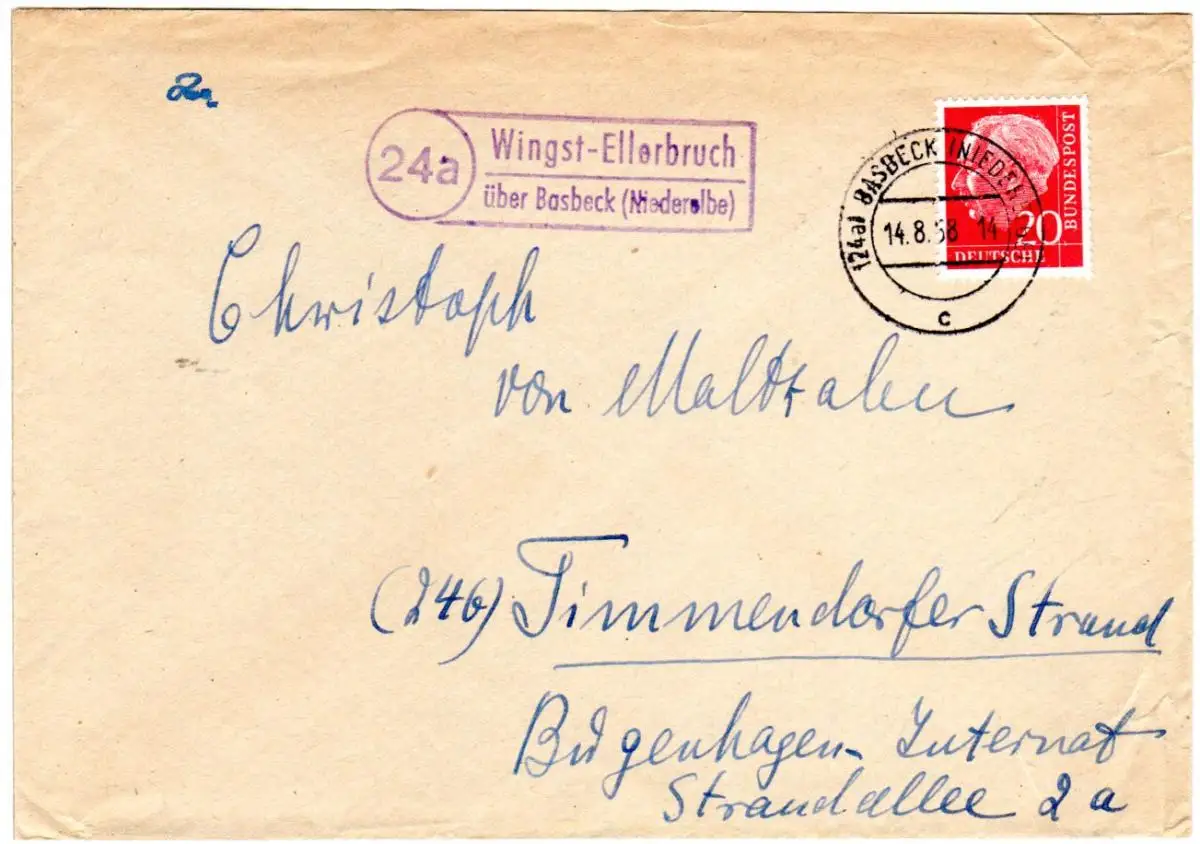 24a Wingst-Ellerbruch
über Basbeck (Niederelbe)
(24a) BASBECK (NIEDER
14.8.58 14
c
20
DEUTSCHE
BUNDESPOST
Christoph
von Maltzahn
(24b) Timmendorfer Strand
Bugenhagen-Internat
Strandallee 2a